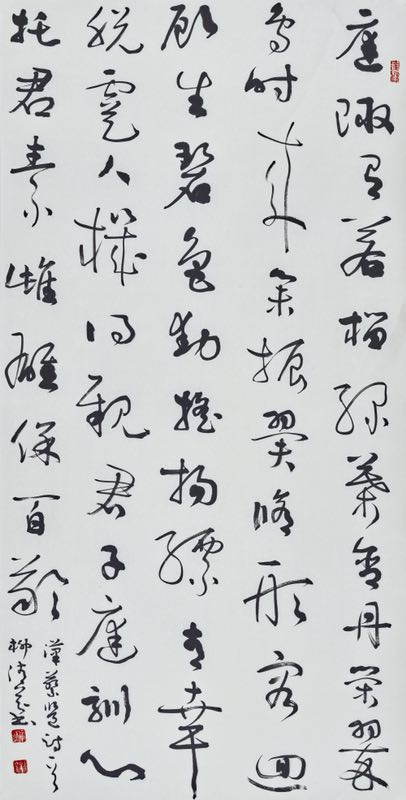 庭陬有若榴綠葉含丹榮翠
鳥時來集振翼脩形容迴
顧生碧色動搖揚縹青幸
脱虞人機得親君子庭訓心
托君素雌雄保百齡
漢蔡邕詩一首
柳清書